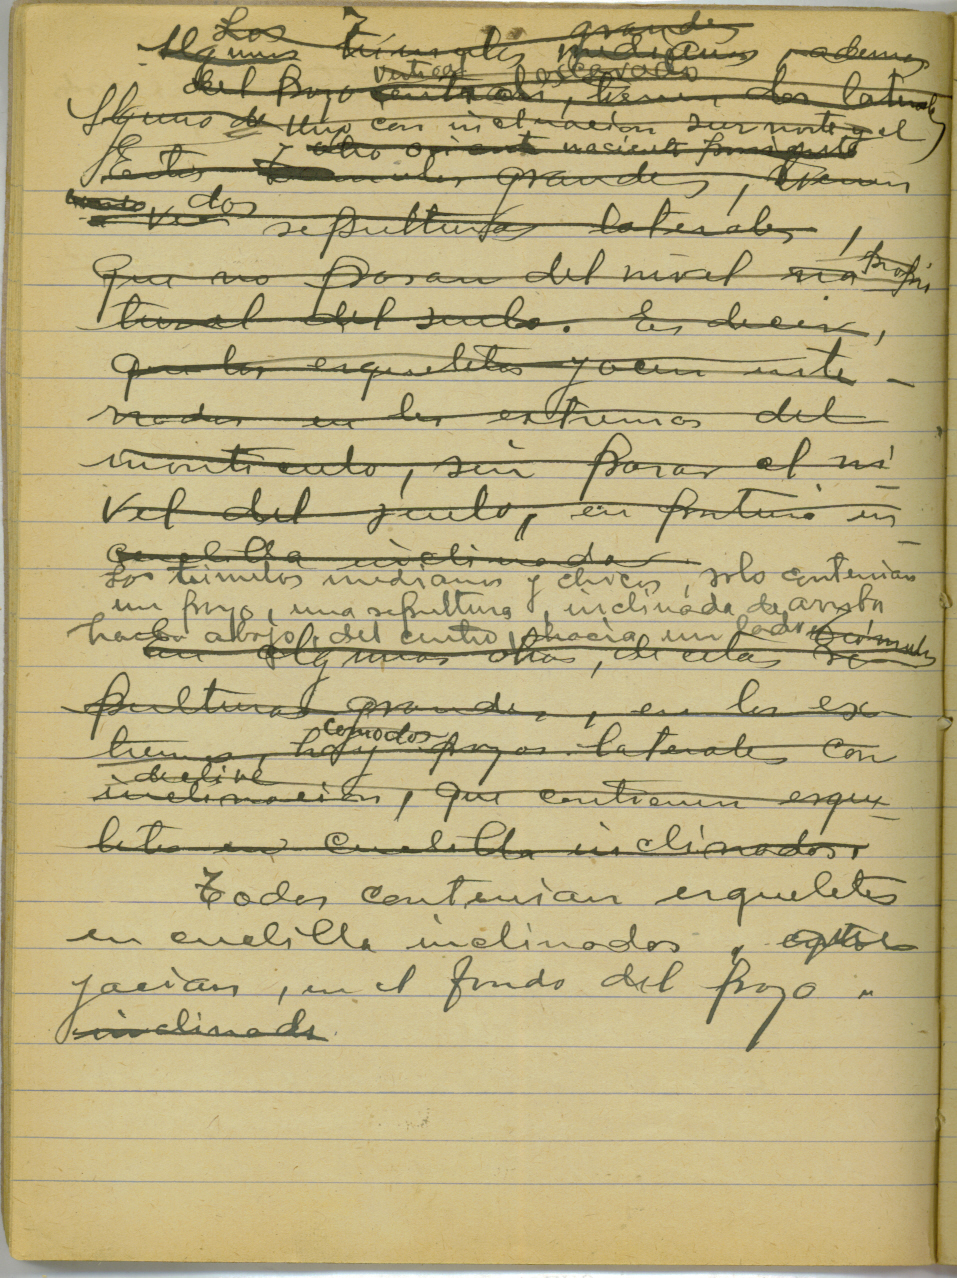 Los grandes
Algunos túmulos medianos, ademas
vertical excavado
del pozo central, tienen dos laterales
Alguno de uno con inclinacion sur norte y el
otro oriente naciente poniente
Estos tumulos grandes, tienen
dos
sepulturas laterales,
que no pasan del nivel na
tural del suelo. Es decir,
que los esqueletos yacen ente-
rrados en los extremos del
monticulo, sin pasar el ni
vel del suelo, en postura en
cuclilla inclinada
Los túmulos medianos y chicos, solo contenian
un pozo, una sepultura, inclinada de arriba
hacia abajo, del centro, hacia un lado.
En algunas otras, de estas se
pulturas grandes, en los ex
comodos
tremos, hay pozos laterales con
declive
inclinacion, que contienen esque
letos en cuclilla inclinados.
Todos contenian esqueletos
en cuclilla inclinados,
yacian, en el fondo del pozo.
inclinado.